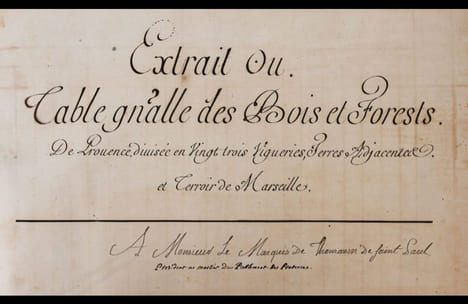 Extrait Ou.
Table gñalle des Bois et Forests.
De Prouence, diuisée en Vingt trois Vigueries, Terres Adjacentes.
et Terroir de Marseille.
A Monsieur Le Marquis De Thomassin de Saint Paul
Président a mortier du Parlement de Provence.